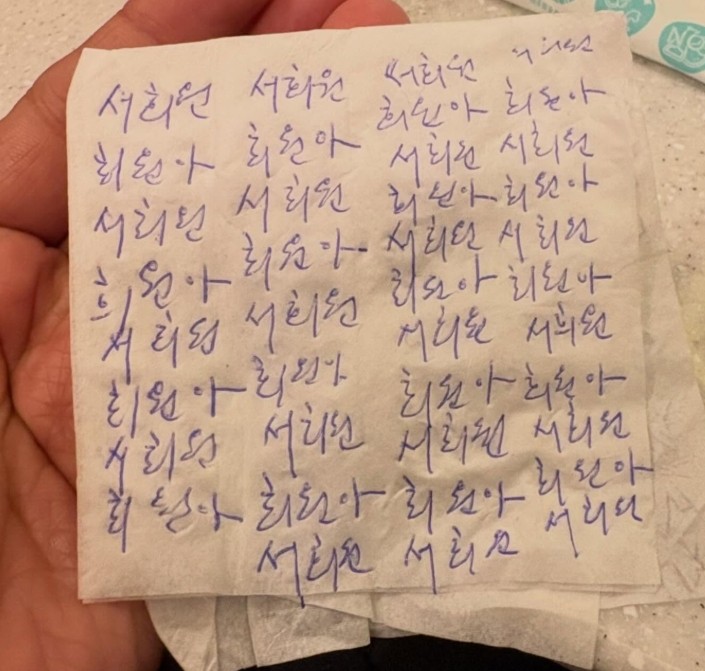 서희원 서희원 서희원 서희원
희원아 희원아 희원아 희원아
서희원 서희원 서희원 서희원
희원아 희원아 희원아 희원아
서희원 서희원 서희원 서희원
희원아 희원아 희원아 희원아
서희원 서희원 서희원 서희원
희원아 희원아 희원아 희원아
서희원 서희원 서희원 서희원